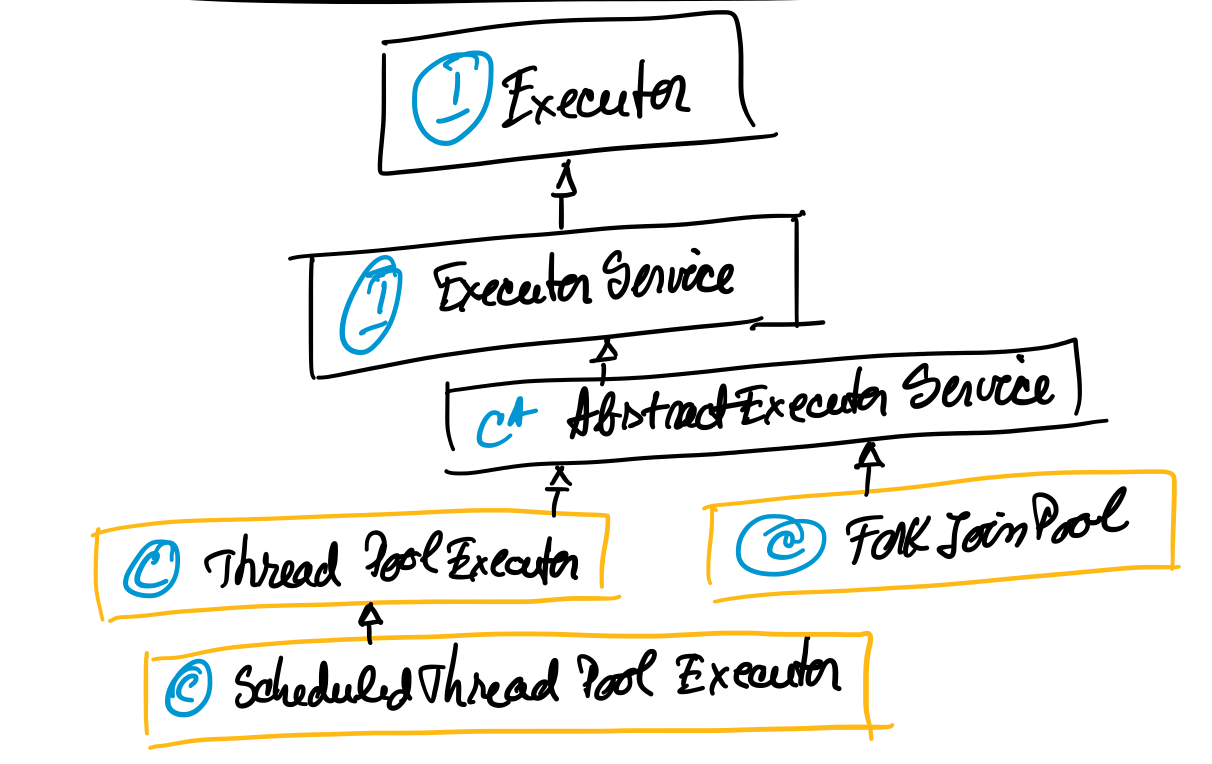 I Executor
I Executor Service
CA AbstractExecutor Service
C Thread Pool Executor
C Fork Join Pool
C ScheduledThread Pool Executor